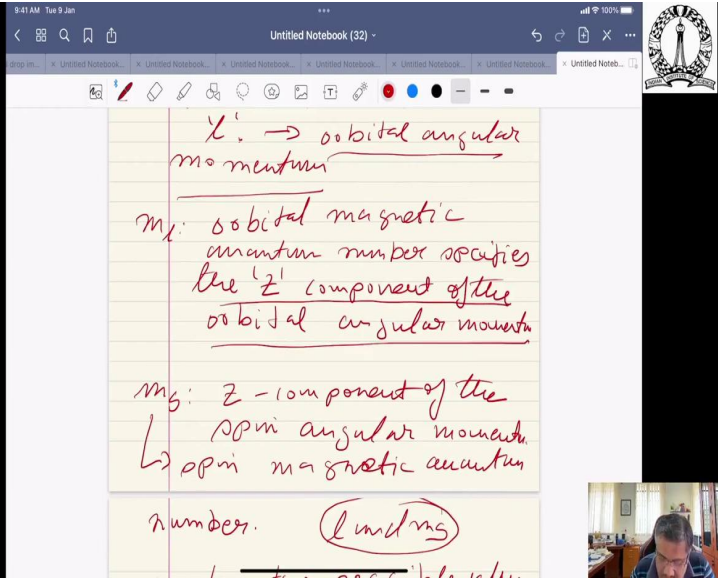 9:41 AM Tue 9 Jan
100%
Untitled Notebook (32)
drop im... × Untitled Notebook... × Untitled Notebook... × Untitled Notebook... × Untitled Notebook... × Untitled Notebook... × Untitled Noteb...
'l': → orbital angular
momentum
ml: orbital magnetic
quantum number specifies
the 'Z' component of the
orbital angular momentum
ms: Z-component of the
spin angular momentum
↳ spin magnetic quantum
number. l and ms